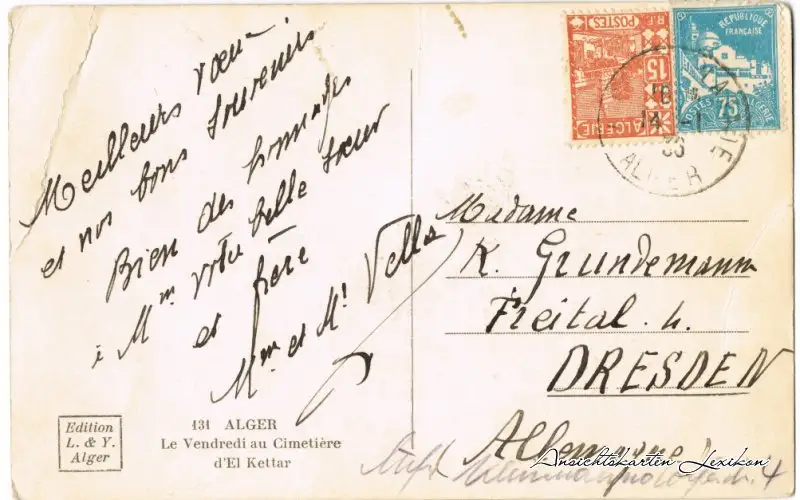 Meilleurs vœux
et nos bons souvenirs
Bien des hommages
à Mme votre belle sœur
et frère
Mme et Mr Vella
131 ALGER
Le Vendredi au Cimetière
d'El Kettar
Edition
L. & Y.
Alger
R.F.
POSTES
15
ALGERIE
RÉPUBLIQUE
FRANÇAISE
POSTES 75 ALGÉRIE
ALGER
Madame
K. Grundemann
Freital. h.
DRESDEN
Allemagne
Ansichtskarten Lexikon